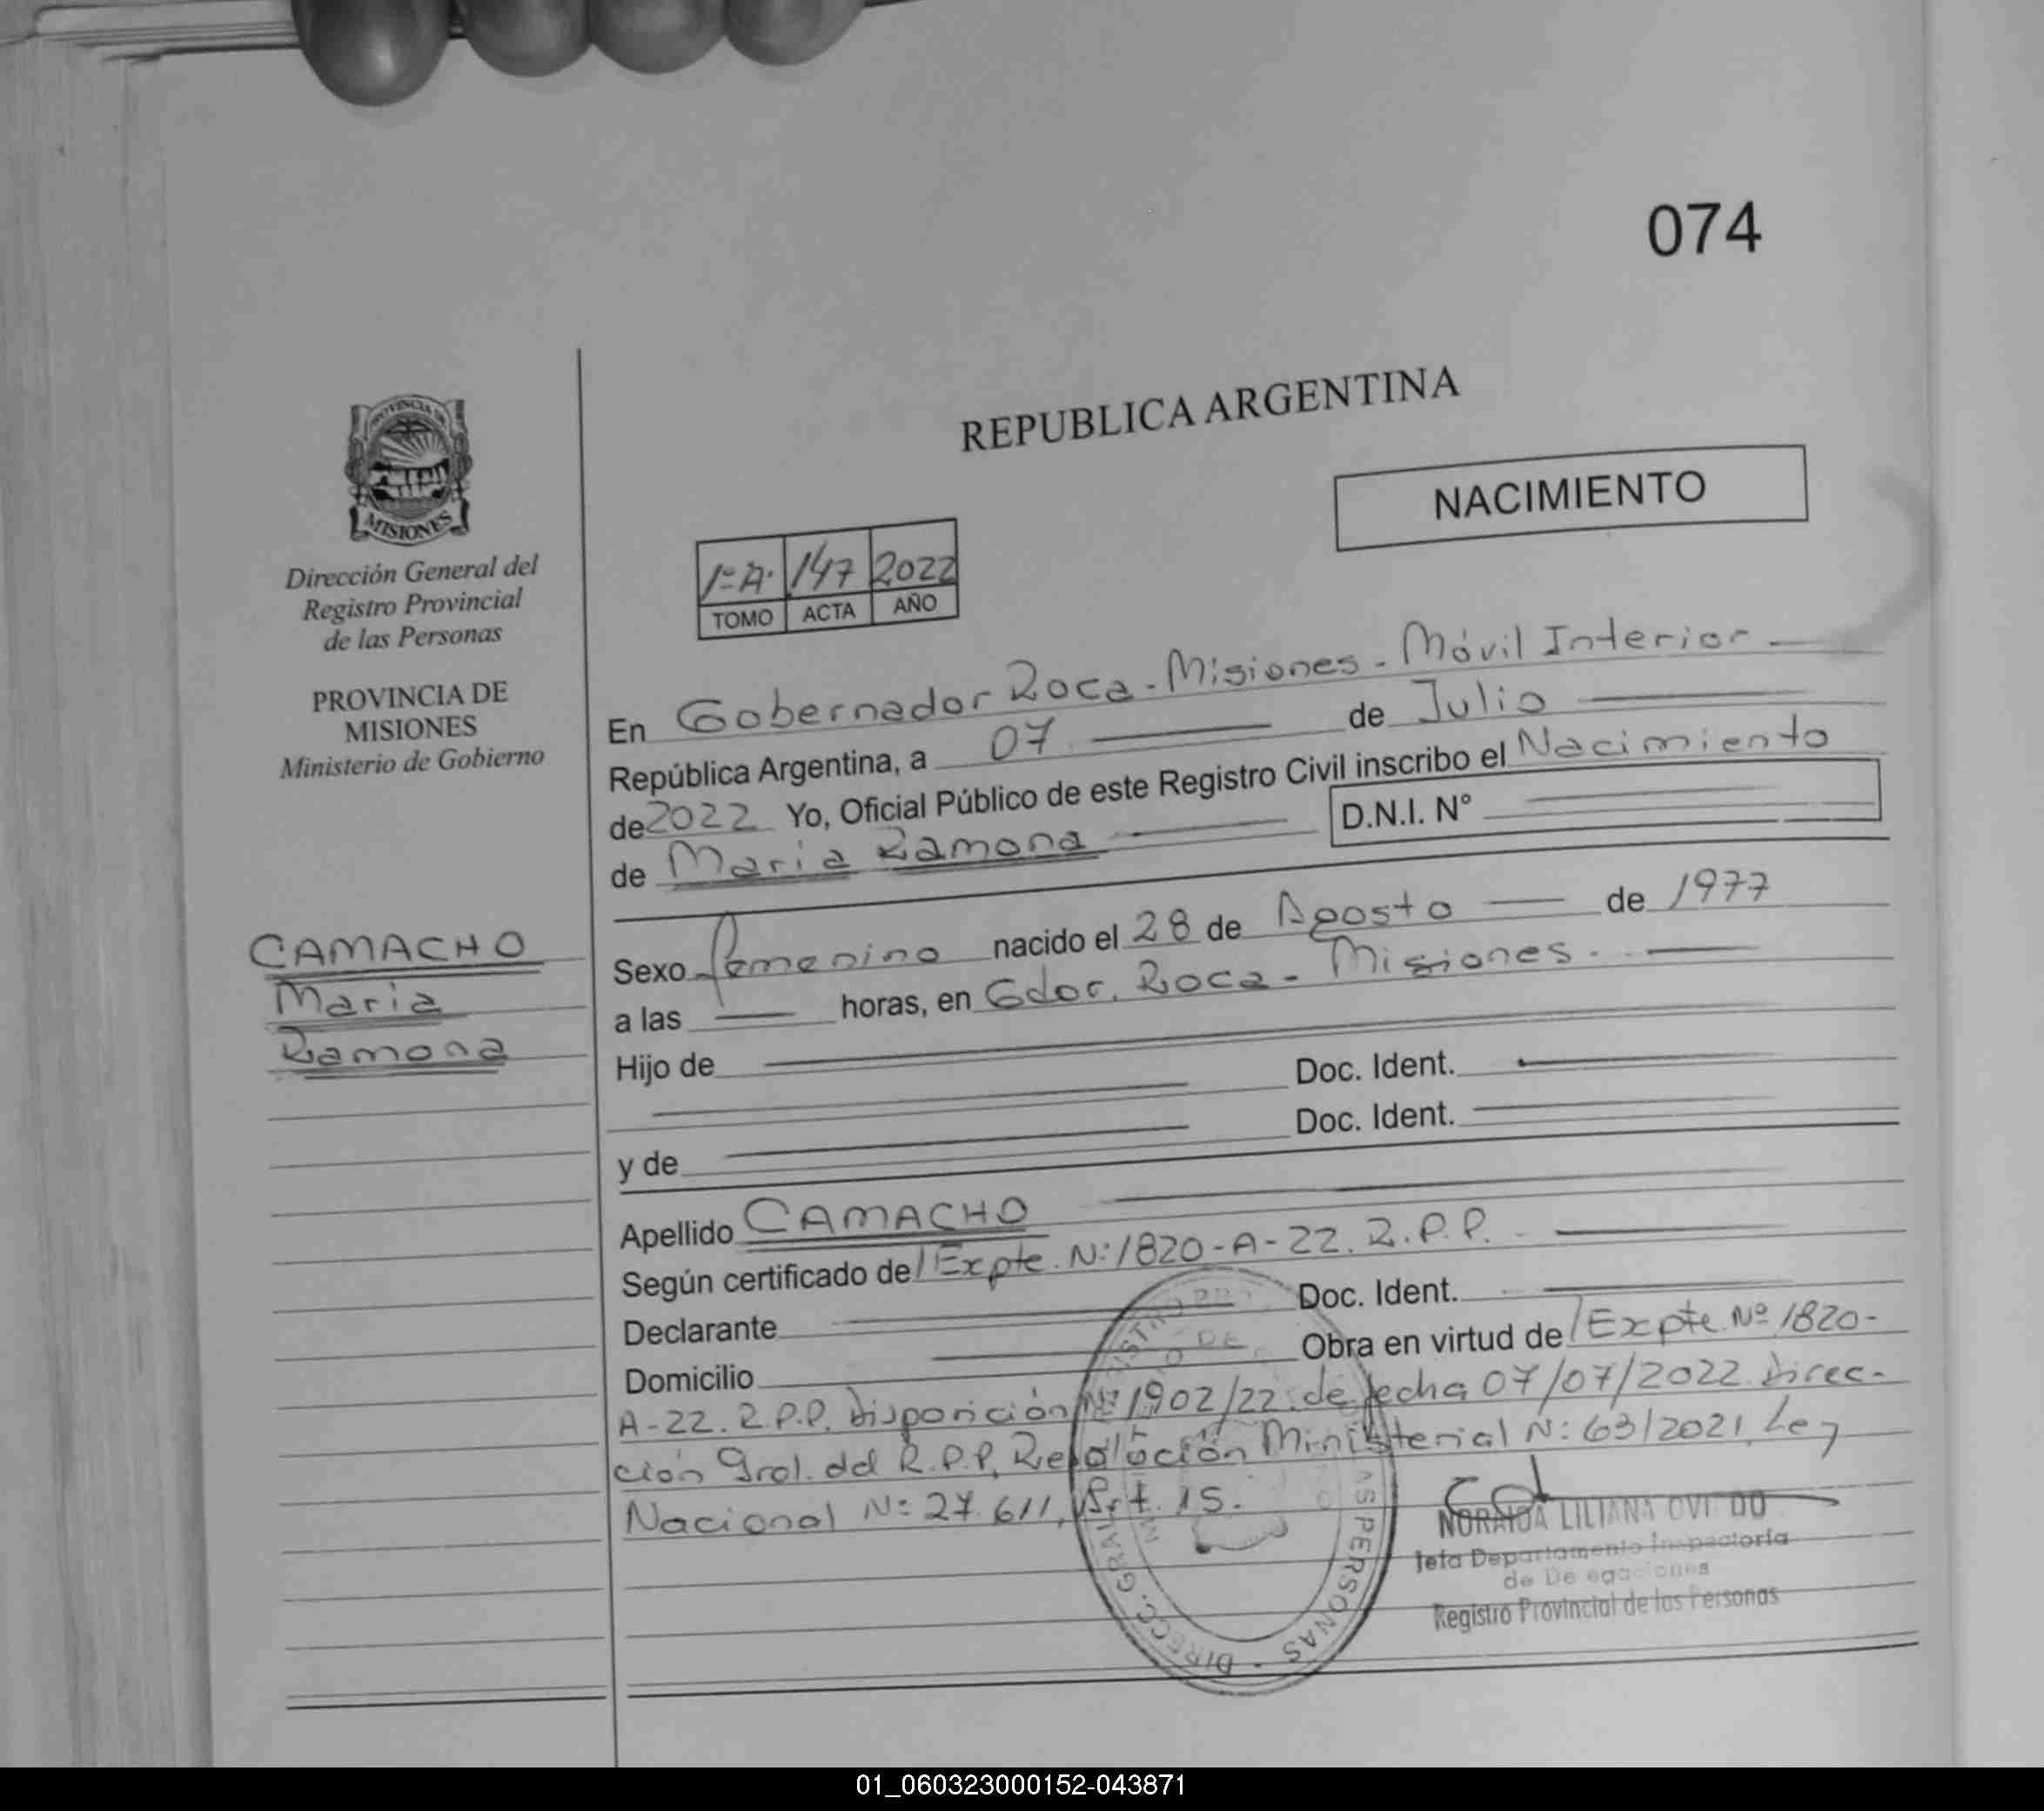 074
REPUBLICA ARGENTINA
NACIMIENTO
PROVINCIA DE
MISIONES
Dirección General del
Registro Provincial
de las Personas
PROVINCIA DE
MISIONES
Ministerio de Gobierno
1º A. 147 2022
TOMO ACTA AÑO
En Gobernador Roca - Misiones - Móvil Interior
República Argentina, a 07 de Julio
de 2022 Yo, Oficial Público de este Registro Civil inscribo el Nacimiento
de Maria Ramona D.N.I. N°
CAMACHO
Maria
Ramona
Sexo femenino nacido el 28 de Agosto de 1977
a las horas, en Gdor. Roca - Misiones.
Hijo de
Doc. Ident.
y de Doc. Ident.
Apellido CAMACHO
Según certificado de/Expte. Nº 1820-A-22. R.P.P.
Declarante Doc. Ident.
Domicilio Obra en virtud de/Expte. Nº 1820-
A-22. R.P.P. Disposición Nº 1902/22. de fecha 07/07/2022. Direc-
ción Gral. del R.P.P. Resolución Ministerial Nº 63/2021, Ley
Nacional Nº 27.611, Art. 15.
NORAIDA LILIANA OVI DO
Jefa Departamento Inspectoría
de De egaciones
Registro Provincial de las Personas
DIRECC. GRAL. AS PERSONAS
01_060323000152-043871